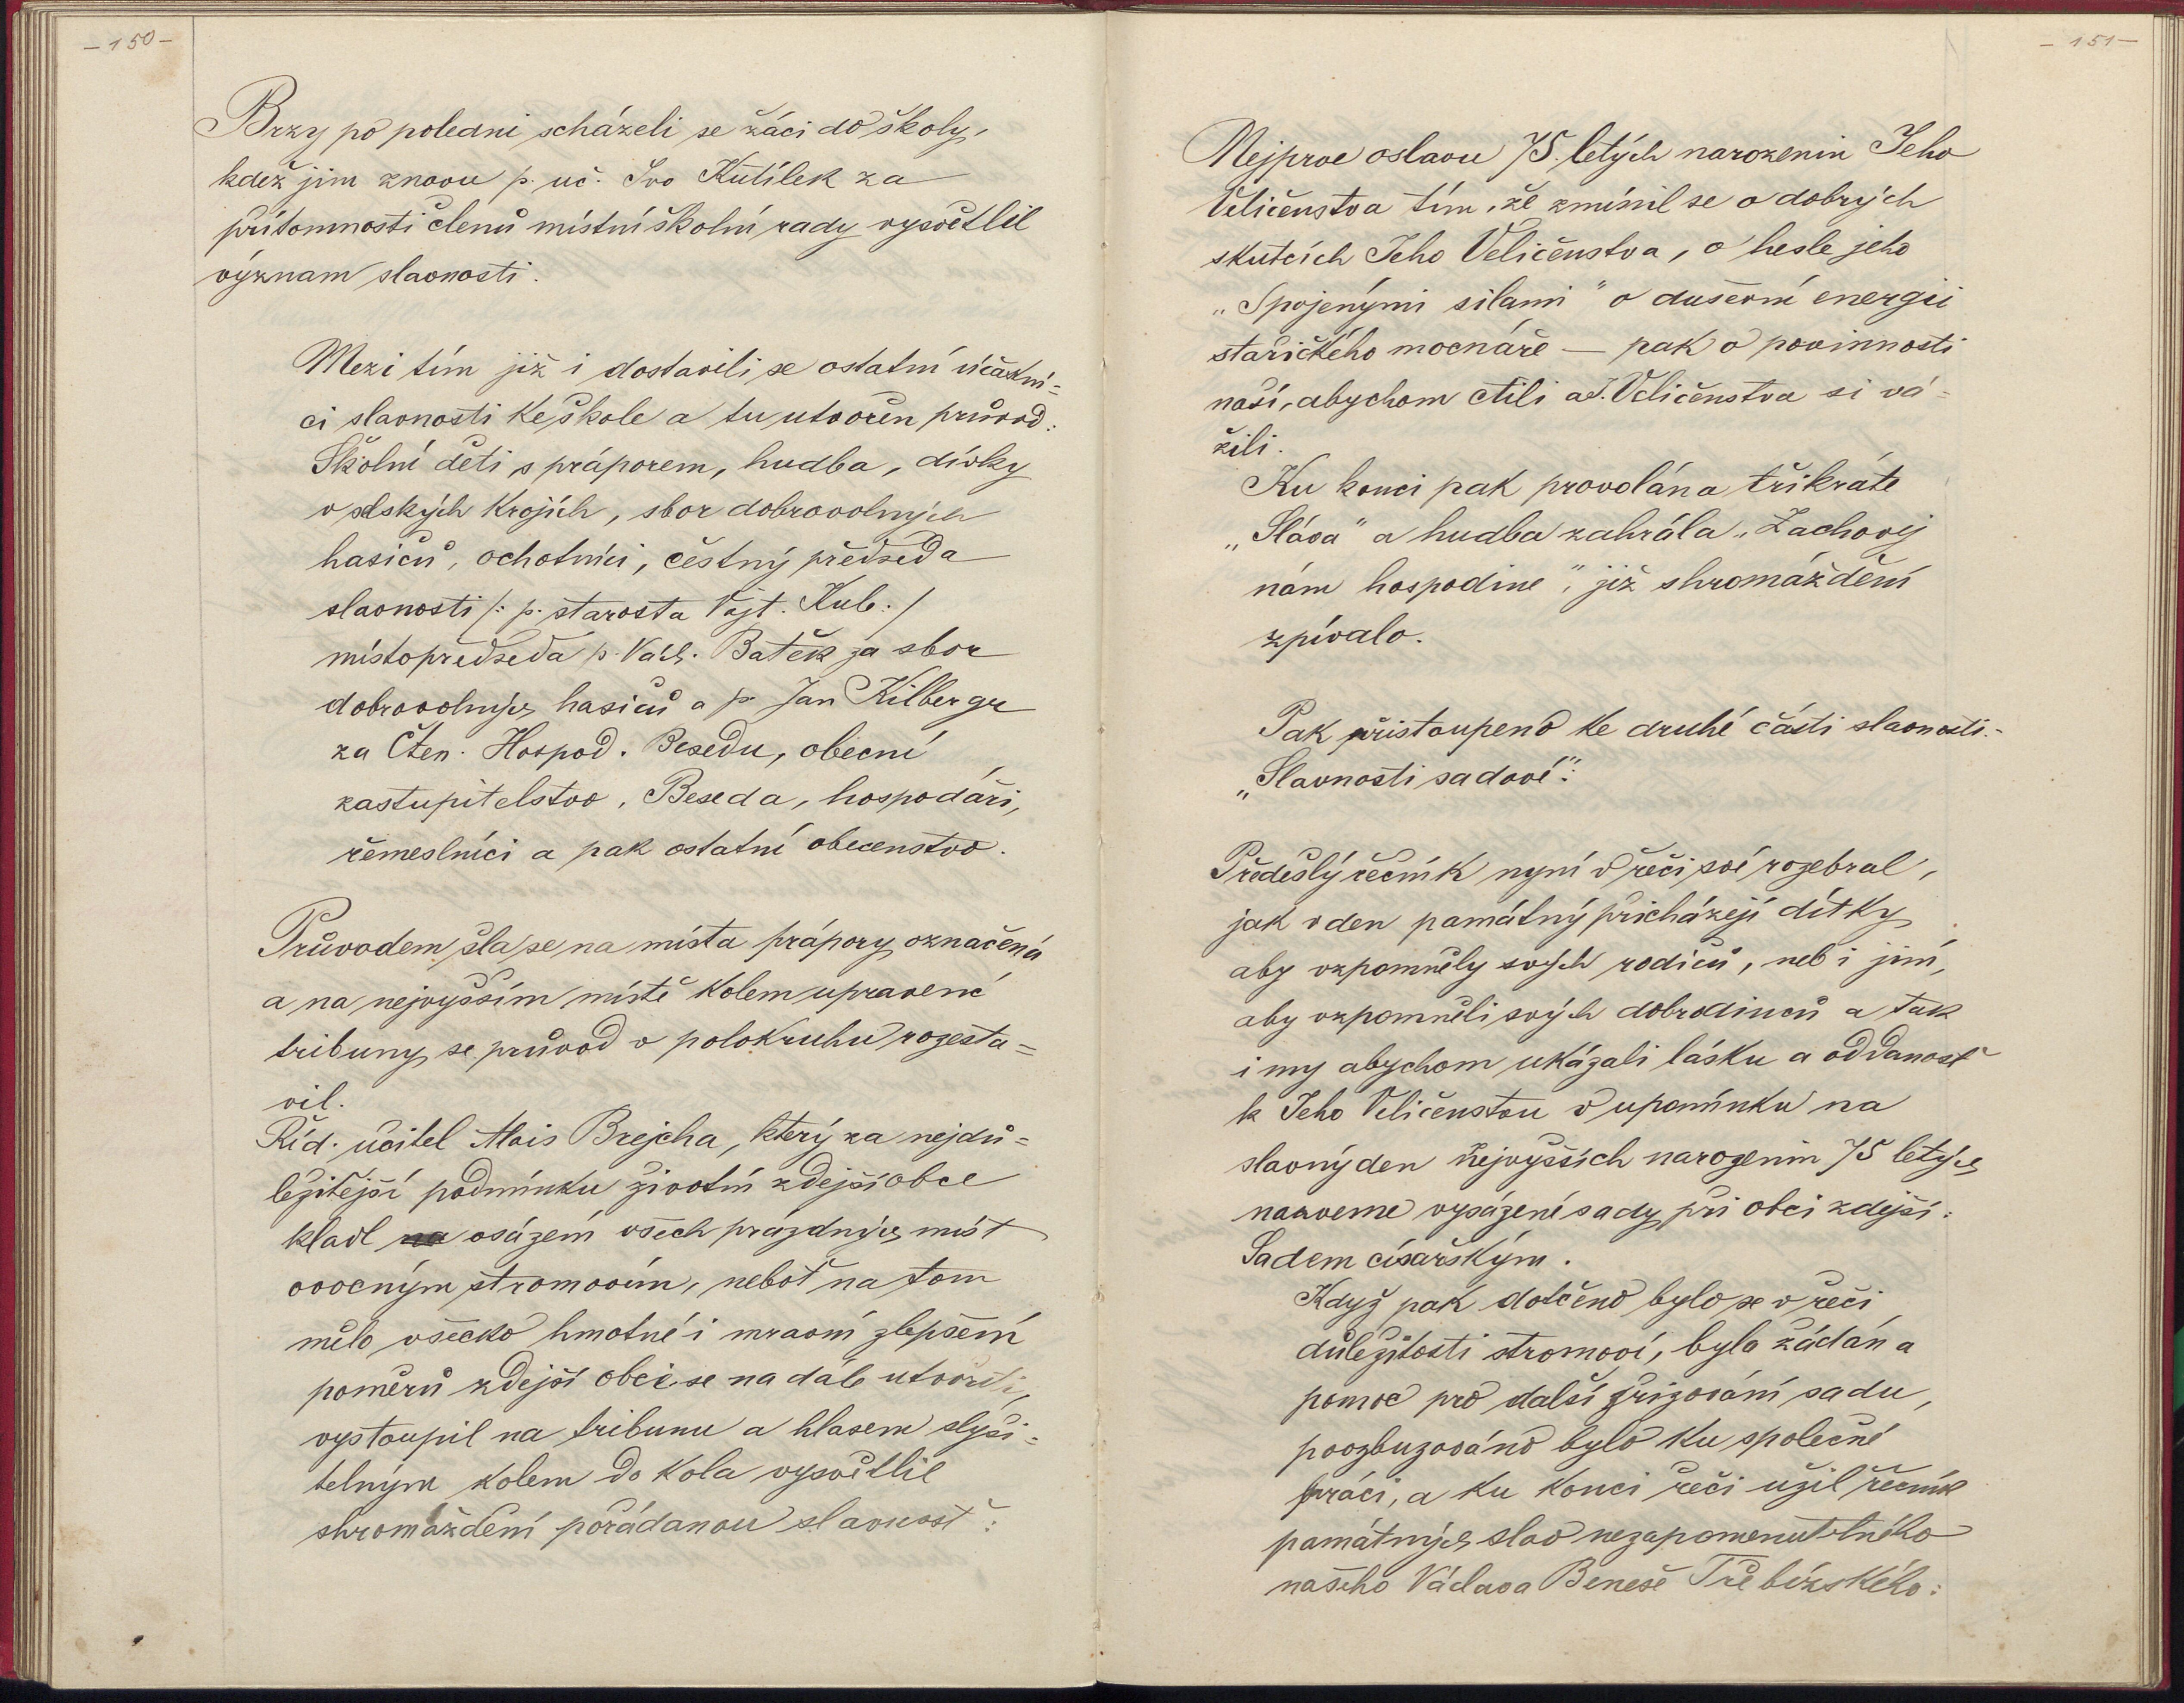 - 150 -
Brzy po poledni scházeli se žáci do školy,
kdež jim znovu p. uč. Ivo Kutílek za
přítomnosti členů místní školní rady vysvětlil
význam slavnosti.
Mezi tím již i dostavili se ostatní účastní=
ci slavnosti ke škole a tu utvořen průvod:
Školní děti s práporem, hudba, dívky
v selských krojích, sbor dobrovolných
hasičů, ochotníci, čestný předseda
slavnosti /: p. starosta Vojt. Kub. :/
místopředseda p. Václ. Batěk za sbor
dobrovolných hasičů a p. Jan Kilberger
za Čten. Hospod. Besedu, obecní
zastupitelstvo, Beseda, hospodáři,
řemeslníci a pak ostatní obecenstvo.
Průvodem šla se na místa prápory označená
a na nejvyšším místě kolem upravené
tribuny se průvod v polokruhu rozesta=
vil.
Říd. učitel Alois Brejcha, který za nejdů=
ležitější podmínku životní zdejší obce
kladl na osázení všech prázdných míst
ovocným stromovím, neboť na tom
mělo všecko hmotné i mravní zlepšení
poměrů zdejší obce se na dále utvořiti,
vystoupil na tribunu a hlasem slyši=
telným kolem do kola vysvětlil
shromáždění pořádanou slavnosť:
- 151 -
Nejprve oslavu 75. letých narozenin Jeho
Veličenstva tím, že zmínil se o dobrých
skutcích Jeho Veličenstva, o hesle jeho
„Spojenými silami" o duševní energii
stařičkého mocnáře — pak o povinnosti
naší, abychom ctili a J. Veličenstva si vá=
žili.
Ku konci pak provolána třikráte
„Sláva" a hudba zahrála „Zachovej
nám hospodine", již shromáždění
zpívalo.
Pak přistoupeno ke druhé části slavnosti.-
„Slavnosti sadové":
Předešlý řečník nyní v řeči své rozebral,
jak v den památný přicházejí dítky,
aby vzpomněly svých rodičů, neb i jiní,
aby vzpomněli svých dobrodinců a tak
i my abychom ukázali lásku a oddanosť
k Jeho Veličenstvu v upomínku na
slavný den nejvyšších narozenin 75 letých
nazveme vysázené sady při obci zdejší:
Sadem císařským.
Když pak dotčeno bylo se v řeči
důležitosti stromoví, byla žádána
pomoc pro další zřizování sadu,
povzbuzováno bylo ku společné
práci, a ku konci řeči užil řečník
památných slov nezapomenutelného
našeho Václava Beneše Třebízského: